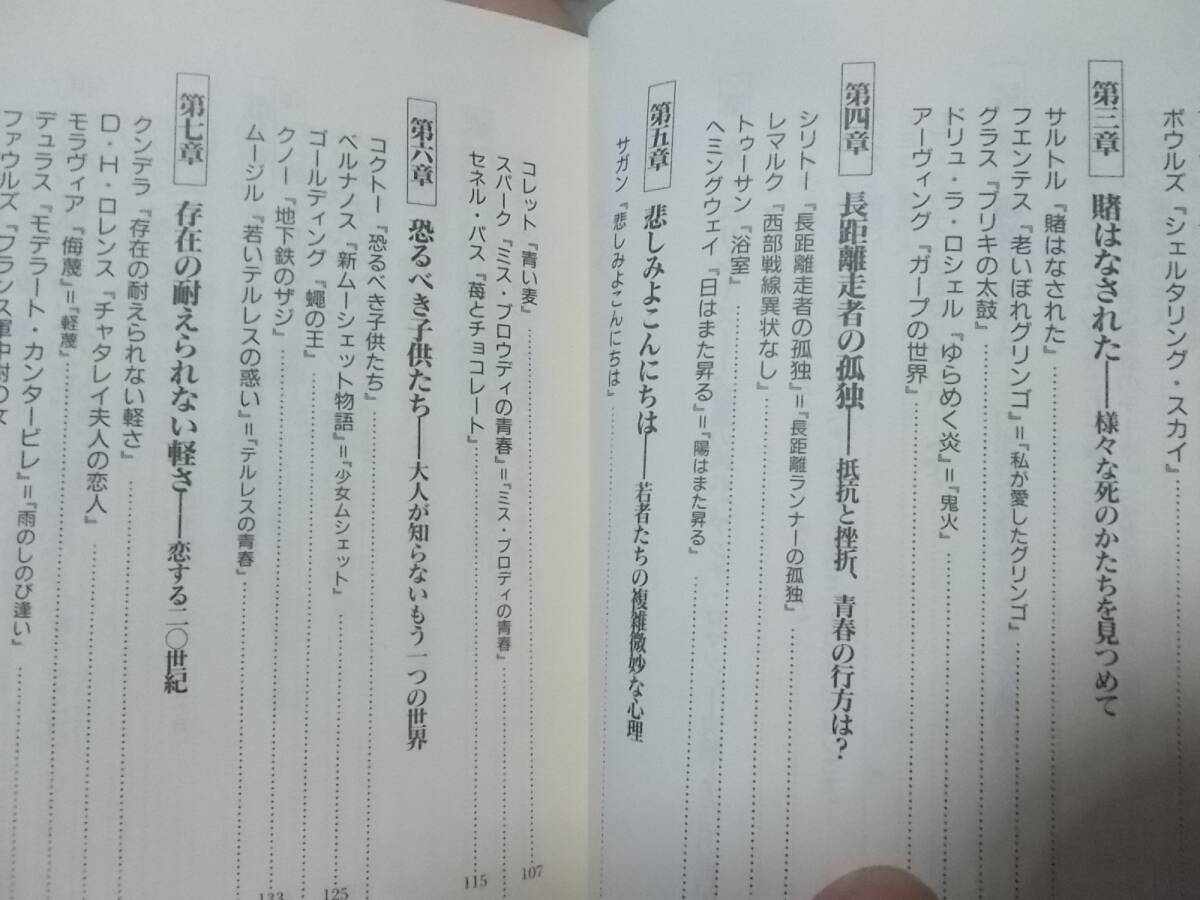 ボウルズ『シェルタリング・スカイ』
第三章 賭はなされた――様々な死のかたちを見つめて
サルトル『賭はなされた』
フエンテス『老いぼれグリンゴ』=『私が愛したグリンゴ』
グラス『ブリキの太鼓』
ドリュ・ラ・ロシェル『ゆらめく炎』=『鬼火』
アーヴィング『ガープの世界』
第四章 長距離走者の孤独――抵抗と挫折、青春の行方は?
シリトー『長距離走者の孤独』=『長距離ランナーの孤独』
レマルク『西部戦線異状なし』
トゥーサン『浴室』
ヘミングウェイ『日はまた昇る』=『陽はまた昇る』
第五章 悲しみよこんにちは――若者たちの複雑微妙な心理
サガン『悲しみよこんにちは』
コレット『青い麦』 107
スパーク『ミス・ブロウディの青春』=『ミス・ブロディの青春』
セネル・パス『苺とチョコレート』 115
第六章 恐るべき子供たち――大人が知らないもう一つの世界
コクトー『恐るべき子供たち』
ベルナノス『新ムーシェット物語』=『少女ムシェット』 125
ゴールディング『蠅の王』
クノー『地下鉄のザジ』 133
ムージル『若いテルレスの惑い』=『テルレスの青春』
第七章 存在の耐えられない軽さ――恋する二〇世紀
クンデラ『存在の耐えられない軽さ』
D・H・ロレンス『チャタレイ夫人の恋人』
モラヴィア『侮蔑』=『軽蔑』
デュラス『モデラート・カンタービレ』=『雨のしのび逢い』
ファウルズ『フランス軍中尉の女